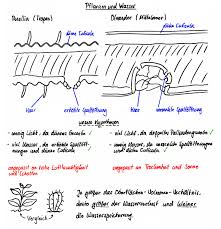 Pflanzen und Wasser
Ruellia (Tropen)
Oleander (Mittelmeer)
dünne Cuticula
dicke Cuticula
Haar
erhöhte Spaltöffnung
Haar
versenkte Spaltöffnung
unsere Vermutungen
- wenig Licht, da dünnere Cuticula
- viel Licht, da doppeltes Palisadengewebe
- viel Wasser, da erhöhte Spaltöffnungen
und dünne Cuticula
- wenig Wasser, da versenkte Spaltöffnungen
und dicke Cuticula
angepasst an hohe Luftfeuchtigkeit
und Schatten
angepasst an Trockenheit und Sonne
Vergleich
Je größer das Oberflächen-Volumen-Verhältnis,
desto größer der Wasserverlust und kleiner
die Wasserspeicherung.